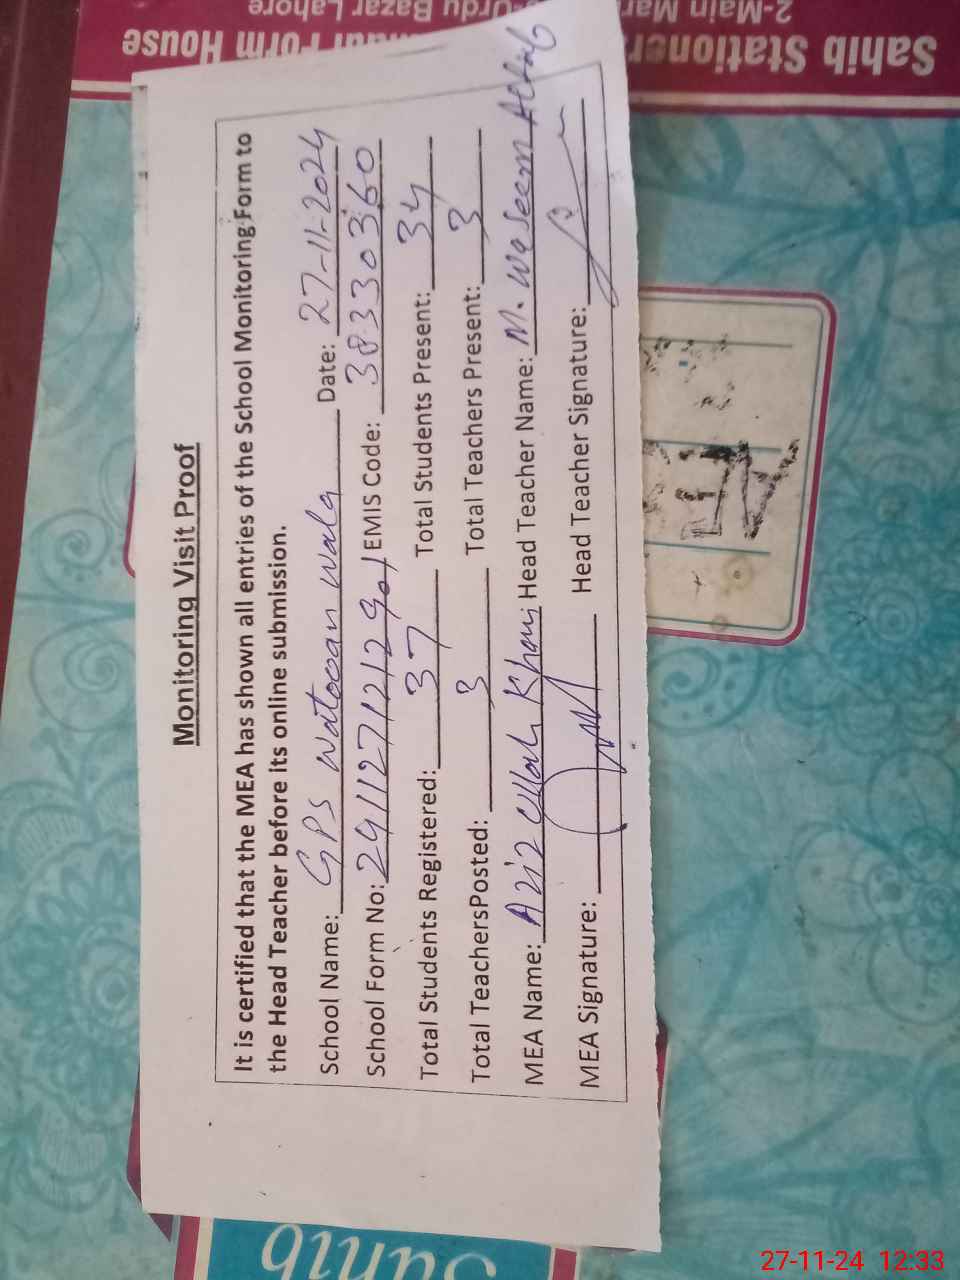 Monitoring Visit Proof
It is certified that the MEA has shown all entries of the School Monitoring Form to
the Head Teacher before its online submission.
School Name: GPS Watocan wala Date: 27-11-2024
School Form No: 241127121290/ EMIS Code: 38330360
Total Students Registered: 37 Total Students Present: 34
Total TeachersPosted: 3 Total Teachers Present: 3
MEA Name: Aziz Ullah Khan Head Teacher Name: M. Waseem Aftab
MEA Signature: Head Teacher Signature:
Sahib Stationer Form House
2-Main Mar Urdu Bazar Lahore
27-11-24 12:33